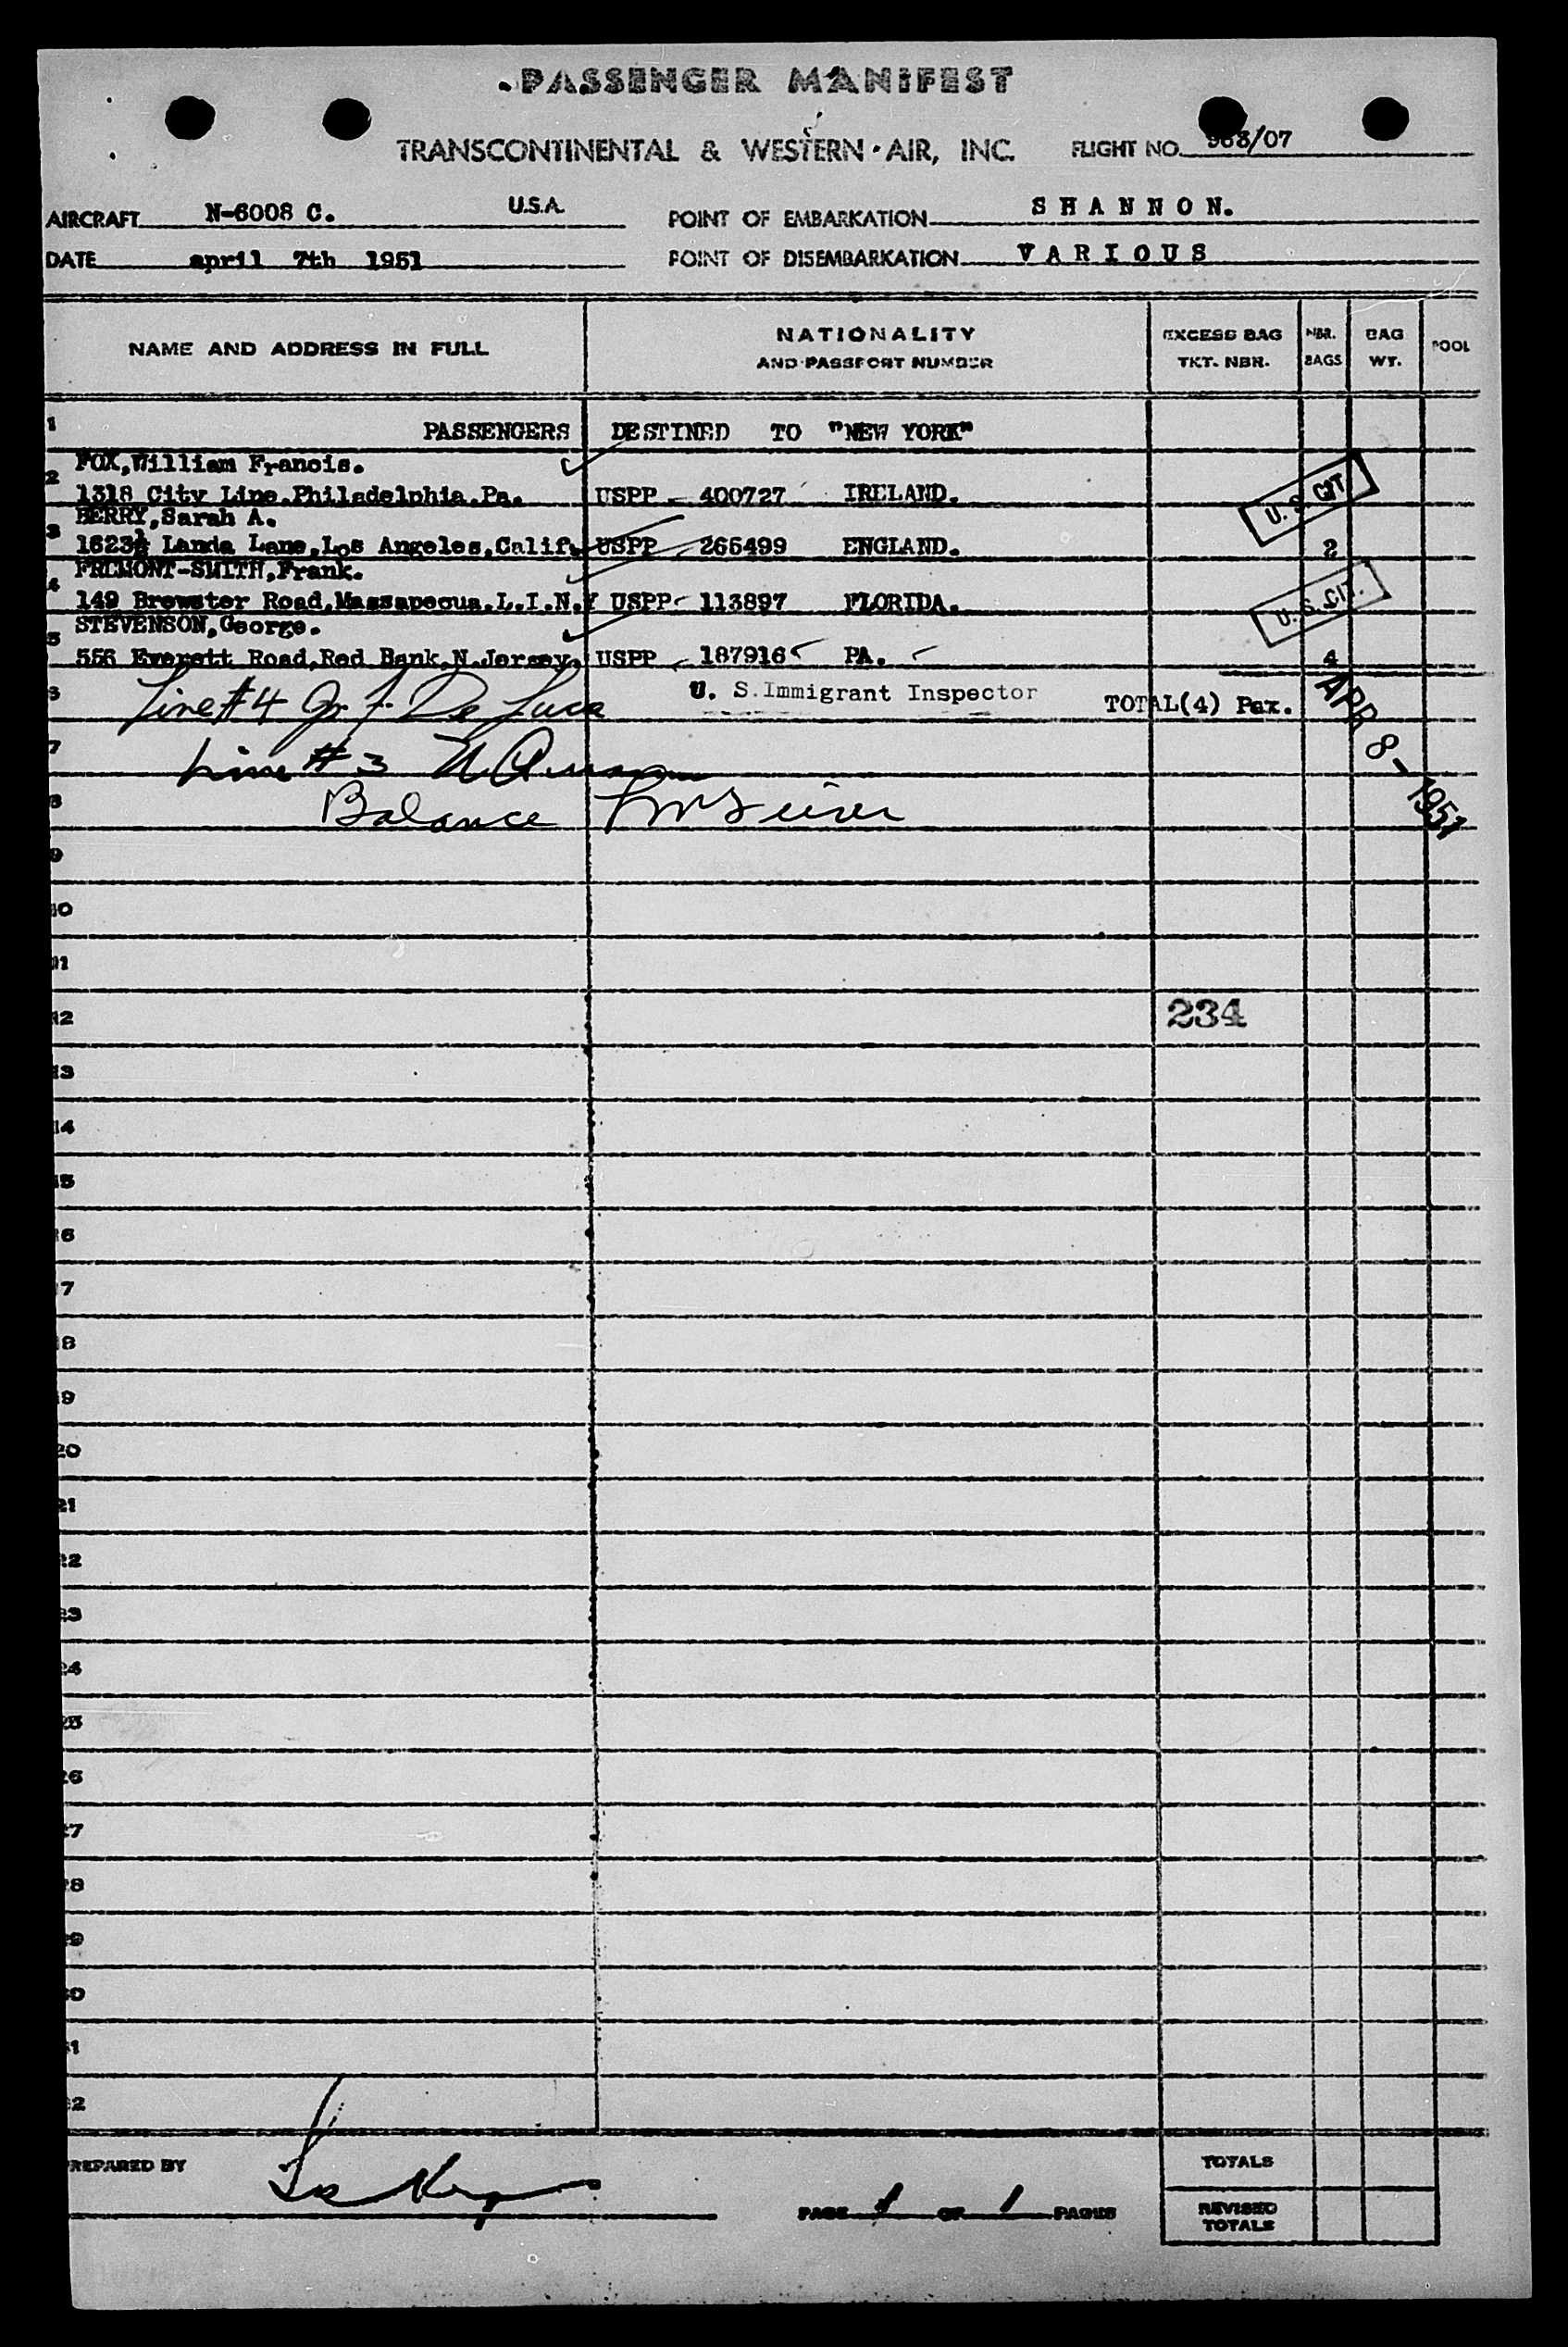 PASSENGER MANIFEST
TRANSCONTINENTAL & WESTERN AIR, INC. FLIGHT NO. 963/07
AIRCRAFT N-6008 C. U.S.A. POINT OF EMBARKATION SHANNON.
DATE april 7th 1951 POINT OF DISEMBARKATION VARIOUS
NAME AND ADDRESS IN FULL NATIONALITY AND PASSPORT NUMBER EXCESS BAG TKT. NBR. NBR. BAGS BAG WT. POOL
1 PASSENGERS DESTINED TO "NEW YORK"
FOX,William Francis.
2 1318 City Line.Philadelphia.Pa. USPP - 400727 IRELAND. U. S. CIT
BERRY,Sarah A.
3 1623½ Landa Lane,Los Angeles,Calif. USPP 266499 ENGLAND. 2
FREMONT-SMITH,Frank.
4 149 Brewster Road.Massapequa.L.I.N.Y USPP 113897 FLORIDA. U. S. CIT.
STEVENSON,George.
5 556 Everett Road,Red Bank,N.Jersey. USPP 187916 PA. 4
6 Line #4 De Luca U. S. Immigrant Inspector TOTAL(4) Pax. APR 8-1951
7 Line #3
8 Balance
9
10
11
12 234
13
14
15
16
17
18
19
20
21
22
23
24
25
26
27
28
29
30
31
32
PREPARED BY TOTALS
PAGE 1 OF 1 PAGES REVISED TOTALS